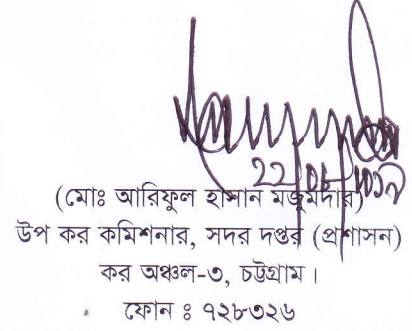 (মোঃ আরিফুল হাসান মজুমদার)
উপ কর কমিশনার, সদর দপ্তর (প্রশাসন)
কর অঞ্চল-৩, চট্টগ্রাম।
ফোন ঃ ৭২৮৩২৬